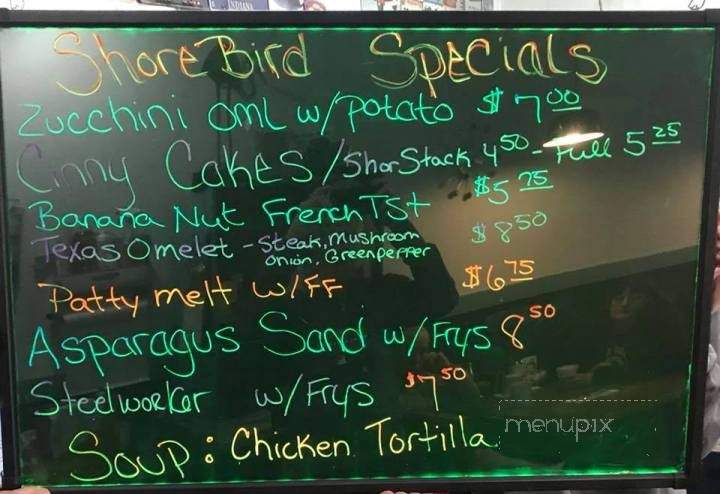 INDIANA
Shore Bird Specials
Zucchini oml w/potato $7.00
Cinny Cakes/Shor Stack 4.50 - Full 5.25
Banana Nut French TSt $5.75
Texas Omelet - Steak, Mushroom $8.50
Onion, Greenpepper
Patty melt w/FF $6.75
Asparagus Sand w/Frys 8.50
Steelworker w/Frys $7.50
Soup: Chicken Tortilla
menupix